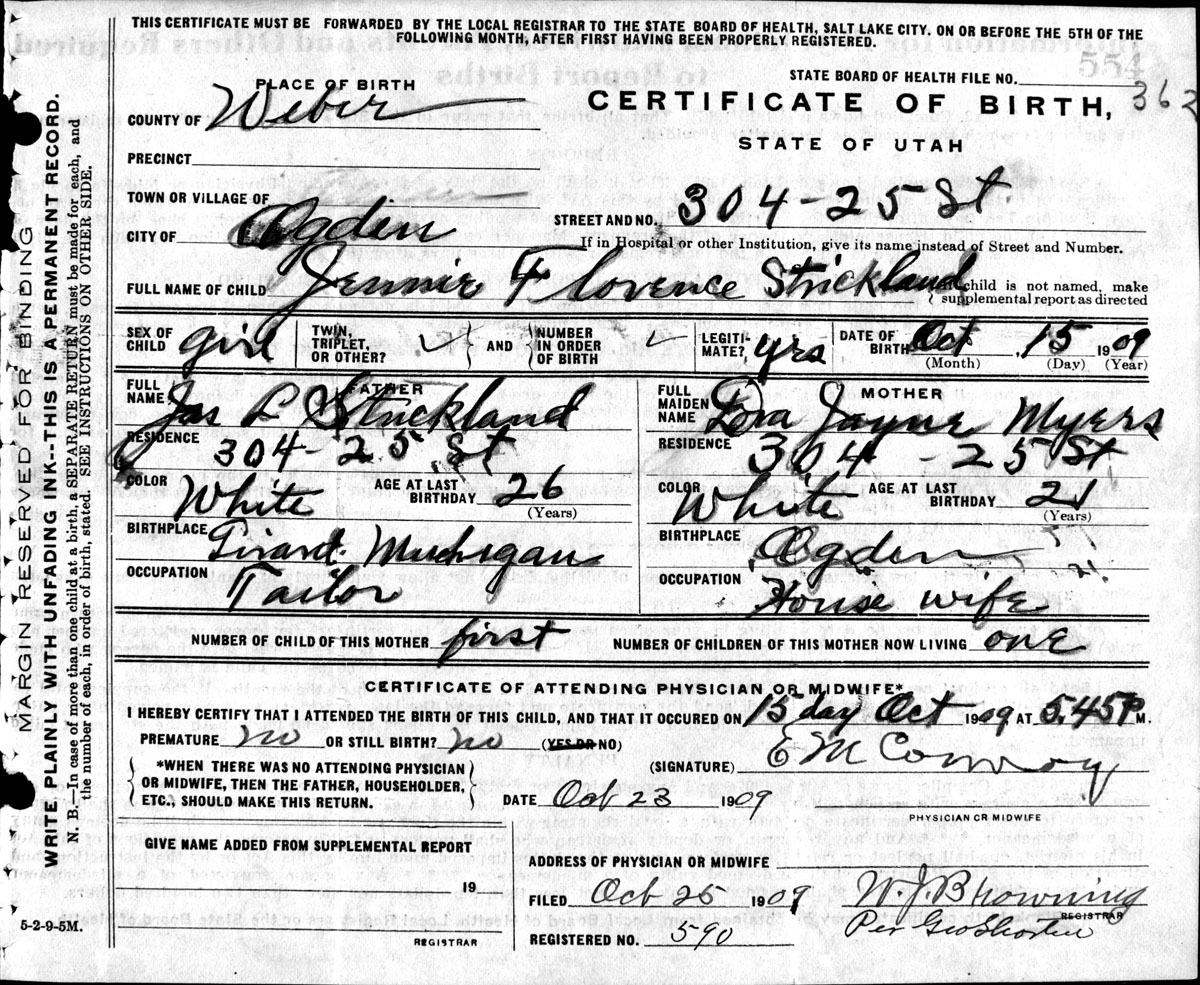 THIS CERTIFICATE MUST BE FORWARDED BY THE LOCAL REGISTRAR TO THE STATE BOARD OF HEALTH, SALT LAKE CITY. ON OR BEFORE THE 5TH OF THE
FOLLOWING MONTH, AFTER FIRST HAVING BEEN PROPERLY REGISTERED.
554
STATE BOARD OF HEALTH FILE NO. 362
PLACE OF BIRTH
CERTIFICATE OF BIRTH,
COUNTY OF Weber
STATE OF UTAH
PRECINCT
TOWN OR VILLAGE OF
STREET AND NO. 304-25 St
CITY OF Ogden
If in Hospital or other Institution, give its name instead of Street and Number.
FULL NAME OF CHILD Jennie Florence Strickland
child is not named, make
supplemental report as directed
SEX OF CHILD girl
TWIN, TRIPLET, OR OTHER? ✓
AND
NUMBER IN ORDER OF BIRTH ✓
LEGITI-MATE? yrs
DATE OF BIRTH Oct, 15 1909
(Month) (Day) (Year)
FATHER
FULL NAME Jas L Strickland
RESIDENCE 304-25 St
COLOR White
AGE AT LAST BIRTHDAY 26
(Years)
BIRTHPLACE Girard Michigan
OCCUPATION Tailor
MOTHER
FULL MAIDEN NAME Dora Jayne Myers
RESIDENCE 304-25 St
COLOR White
AGE AT LAST BIRTHDAY 21
(Years)
BIRTHPLACE Ogden
OCCUPATION House wife
NUMBER OF CHILD OF THIS MOTHER first
NUMBER OF CHILDREN OF THIS MOTHER NOW LIVING one
CERTIFICATE OF ATTENDING PHYSICIAN OR MIDWIFE*
I HEREBY CERTIFY THAT I ATTENDED THE BIRTH OF THIS CHILD, AND THAT IT OCCURED ON 15 day Oct 1909 AT 5.45 P M.
PREMATURE no OR STILL BIRTH? no (YES OR NO)
(SIGNATURE) E M Conroy
*WHEN THERE WAS NO ATTENDING PHYSICIAN
OR MIDWIFE, THEN THE FATHER, HOUSEHOLDER,
ETC., SHOULD MAKE THIS RETURN.
DATE Oct 23 1909
PHYSICIAN OR MIDWIFE
GIVE NAME ADDED FROM SUPPLEMENTAL REPORT
19
REGISTRAR
ADDRESS OF PHYSICIAN OR MIDWIFE
FILED Oct 25 1909
W. J. Browning
REGISTRAR
Per Geo
REGISTERED NO. 590
5-2-9-5M.
MARGIN RESERVED FOR BINDING
WRITE PLAINLY WITH UNFADING INK--THIS IS A PERMANENT RECORD.
N. B.—In case of more than one child at a birth, a SEPARATE RETURN must be made for each, and
the number of each, in order of birth, stated. SEE INSTRUCTIONS ON OTHER SIDE.